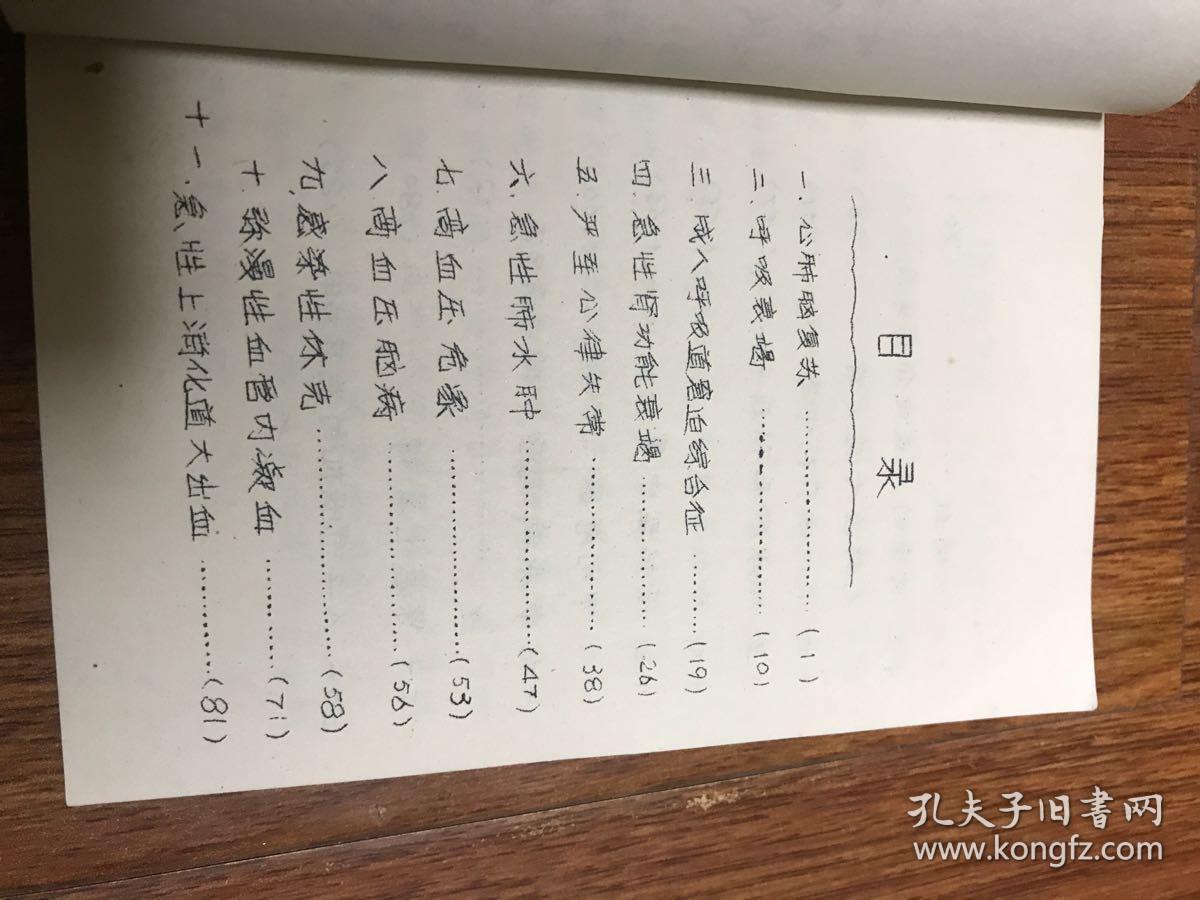 目 录
一、心肺脑复苏…………………(1)
二、呼吸衰竭…………………(10)
三、成人呼吸道窘迫综合征………(19)
四、急性肾功能衰竭……………(26)
五、严重心律失常………………(38)
六、急性肺水肿…………………(47)
七、高血压危象…………………(53)
八、高血压脑病…………………(56)
九、感染性休克…………………(58)
十、弥漫性血管内凝血…………(71)
十一、急性上消化道大出血…………(81)
孔夫子旧書网
www.kongfz.com